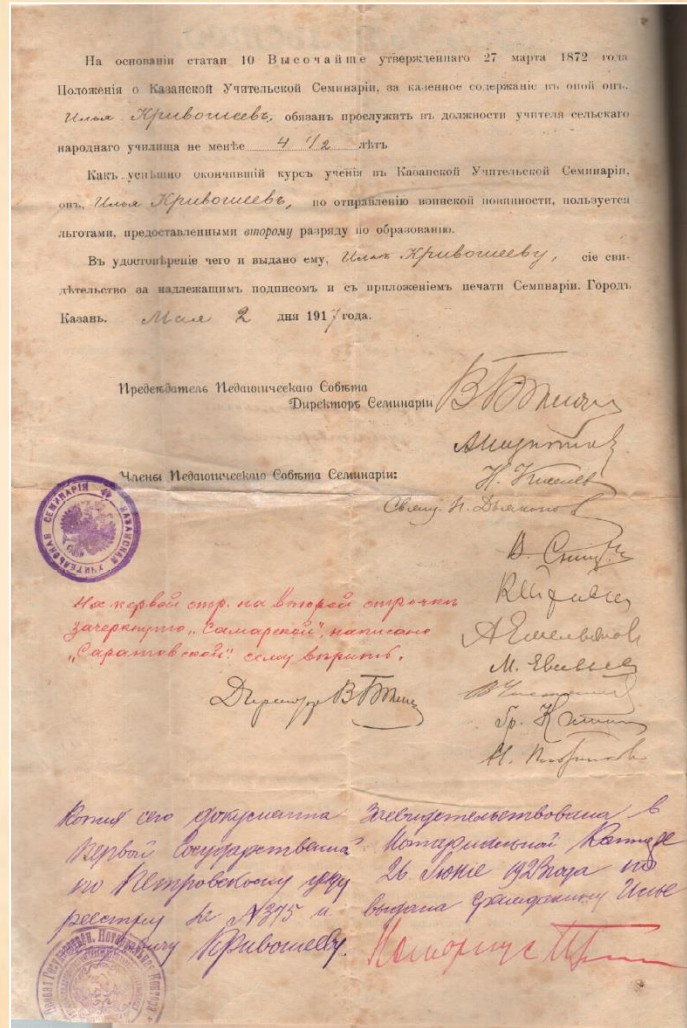 На основаніи статьи 10 Высочайше утвержденнаго 27 марта 1872 года
Положенія о Казанской Учительской Семинаріи, за казенное содержаніе въ оной онъ,
Илья Кривошеевъ, обязанъ прослужить въ должности учителя сельскаго
народнаго училища не менѣе 4 1/2 лѣтъ
Какъ успѣшно окончившій курсъ ученія въ Казанской Учительской Семинаріи,
онъ, Илья Кривошеевъ, по отправленію воинской повинности, пользуется
льготами, предоставленными второму разряду по образованію.
Въ удостовѣреніе чего и выдано ему, Ильѣ Кривошееву, сіе сви-
дѣтельство за надлежащимъ подписомъ и съ приложеніемъ печати Семинаріи. Городъ
Казань. Мая 2 дня 1917 года.
Предсѣдатель Педагогическаго Совѣта
Директоръ Семинаріи
Члены Педагогическаго Совѣта Семинаріи:
Н. Киселев
Свящ. Н. Дьяконов
А Емельянов
М. Евсевьев
КАЗАНСКАЯ УЧИТЕЛЬСКАЯ СЕМИНАРІЯ
На первой стр. на второй строчкѣ
зачеркнуто „Самарской", написано
„Саратовской" сему вѣрить.
Директоръ
Копия сего документа засвидетельствована в
Первой Государственной Нотариальной Конторе
по Петровскому уезду 26 Июня 1923 года по
реестру за №375 и выдана гражданину Илье
Кривошееву. Нотариус